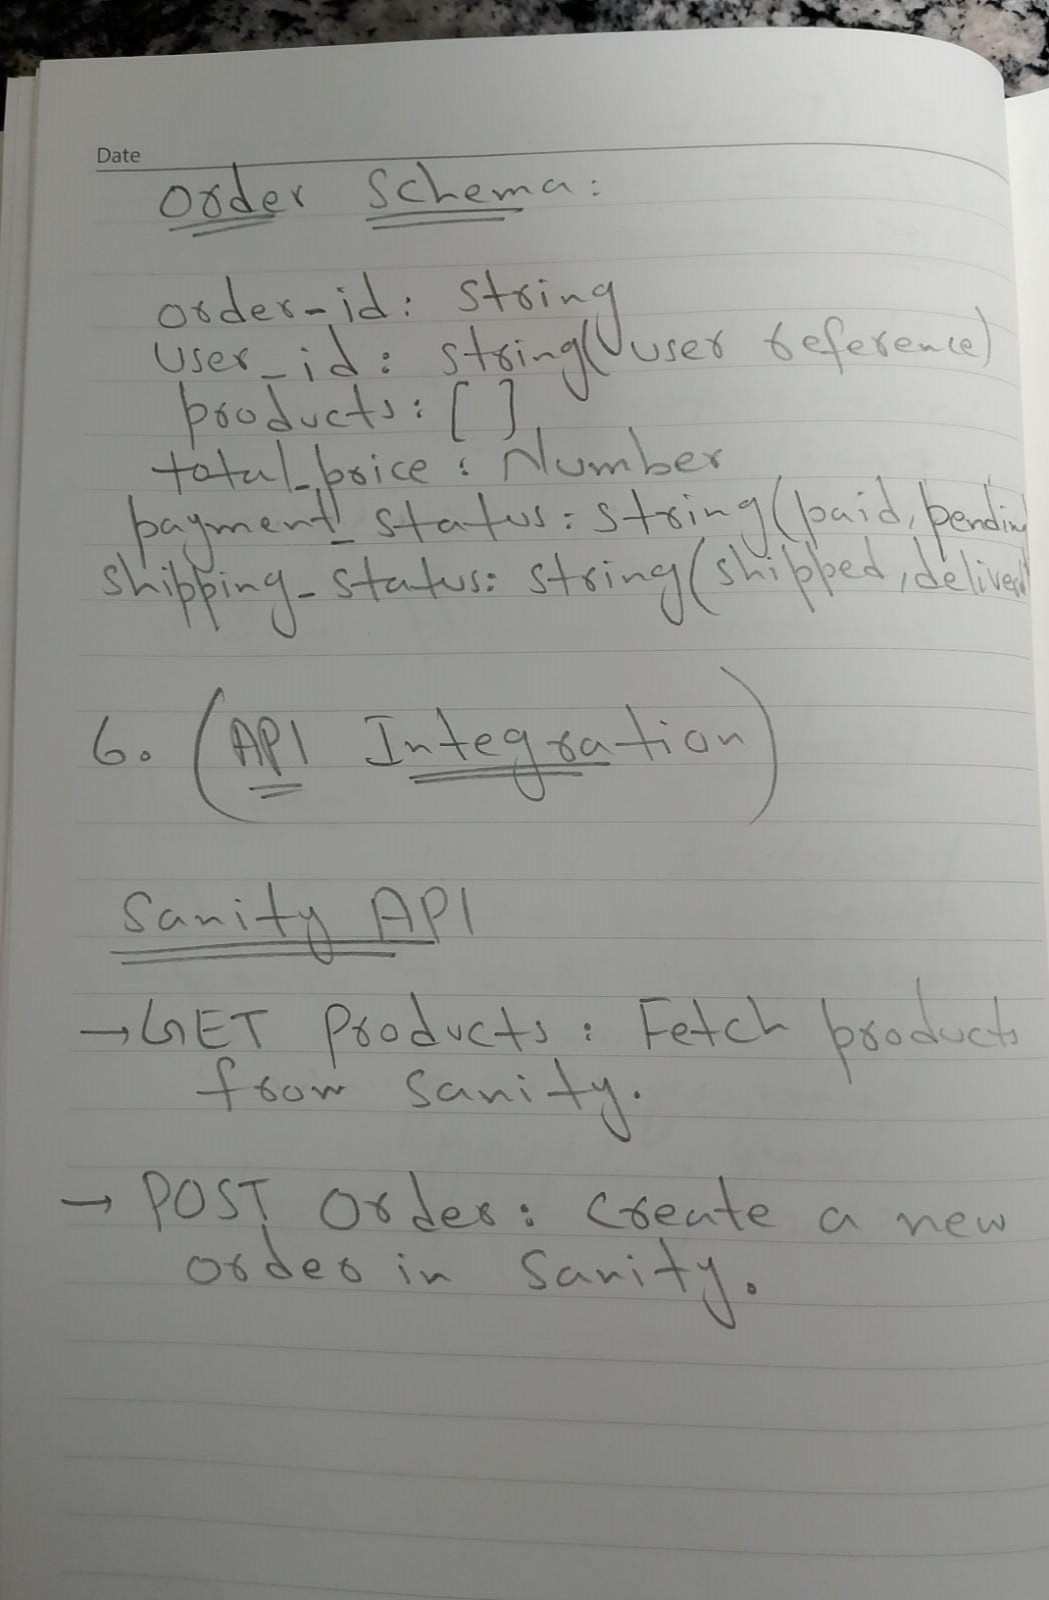 Date
Order Schema:
order-id: string
User_id: string(user reference)
products: []
total_price: Number
payment_status: string(paid, pending
shipping_status: string(shipped, delivered
6. (API Integration)
Sanity API
→ GET Products: Fetch products
from sanity.
→ POST Order: Create a new
order in Sanity.